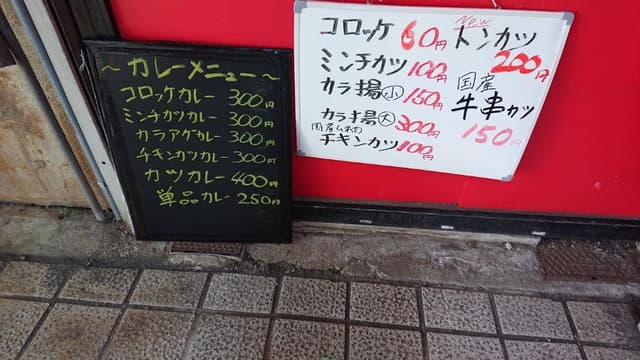 ～カレーメニュー～
コロッケカレー 300円
ミンチカツカレー 300円
カラアゲカレー 300円
チキンカツカレー 300円
カツカレー 400円
単品カレー 250円
コロッケ 60円
ミンチカツ 100円
カラ揚小 150円
カラ揚大 300円
国産ムネ肉
チキンカツ 100円
New
トンカツ
200円
国産
牛串カツ
150円